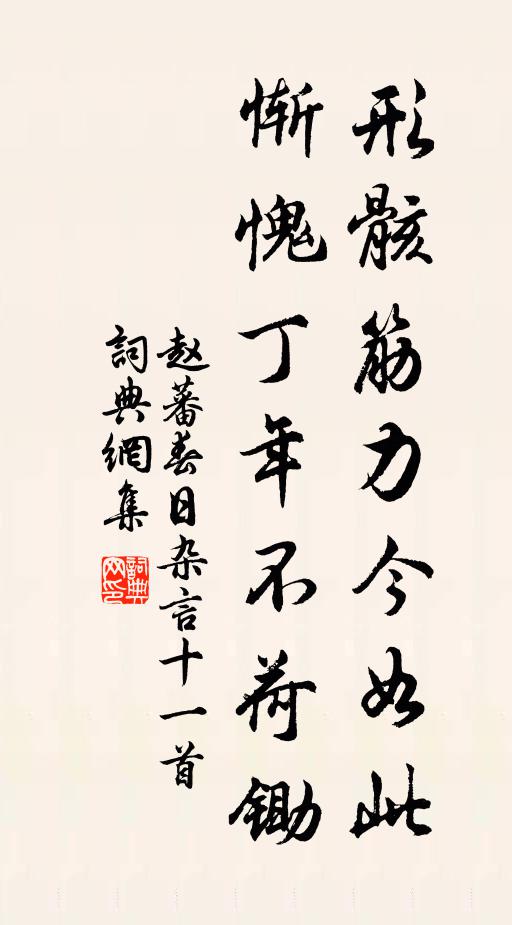 形骸筋力今如此
慚愧丁年不荷鋤
赵蕃春日杂言十一首
詞典網集
詞典网印